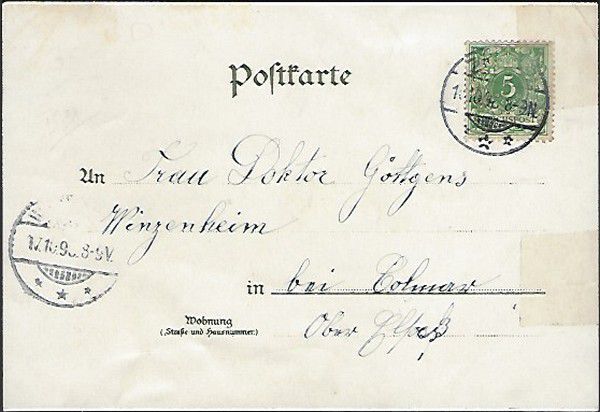 Postkarte
5
REICHSPOST
8-9N.
An Frau Doktor Göttgens
Winzenheim
8-9V.
in bei Colmar
Wohnung
(Straße und Hausnummer.)
Ober Elsaß